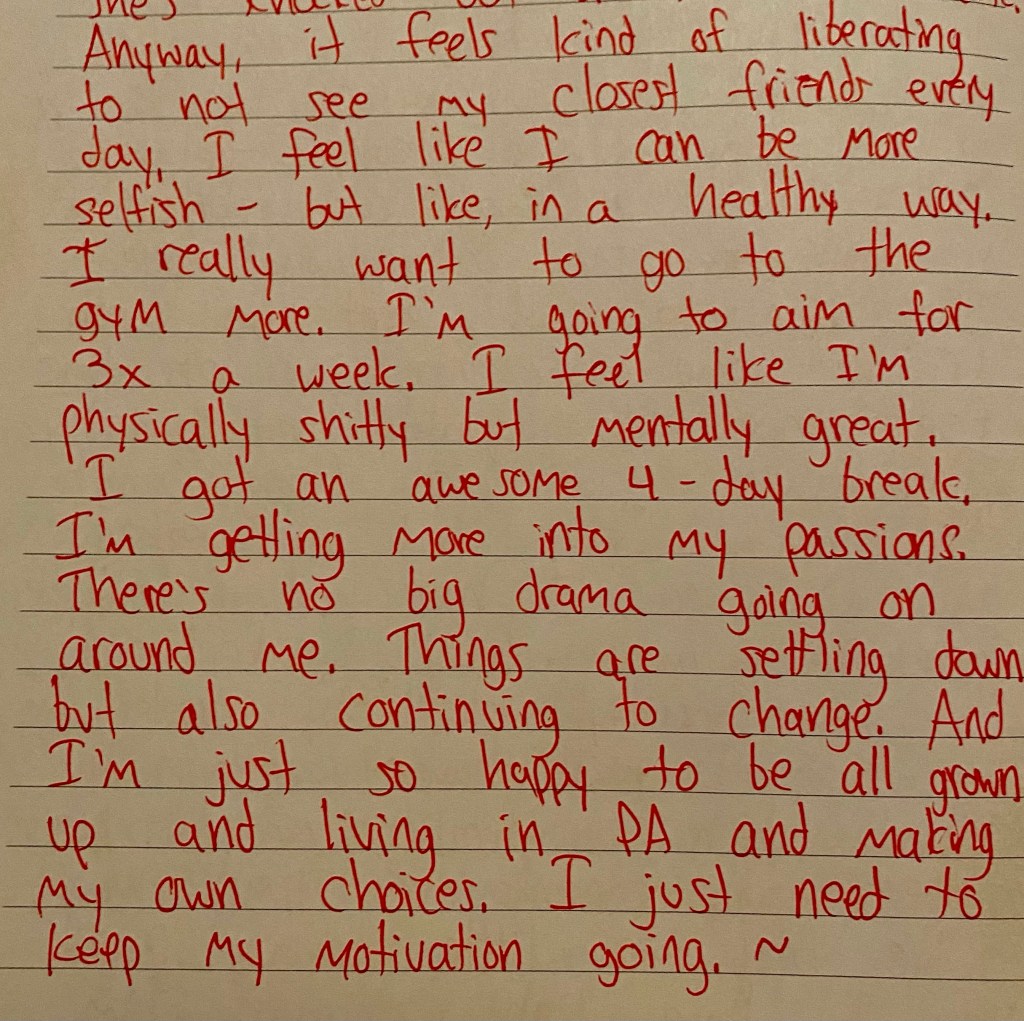 she's knocked
Anyway, it feels kind of liberating
to not see my closest friends every
day. I feel like I can be more
selfish - but like, in a healthy way.
I really want to go to the
gym more. I'm going to aim for
3x a week. I feel like I'm
physically shitty but mentally great.
I got an awesome 4-day break.
I'm getting more into my passions.
There's no big drama going on
around me. Things are settling down
but also continuing to change. And
I'm just so happy to be all grown
up and living in PA and making
my own choices. I just need to
keep my motivation going. ~